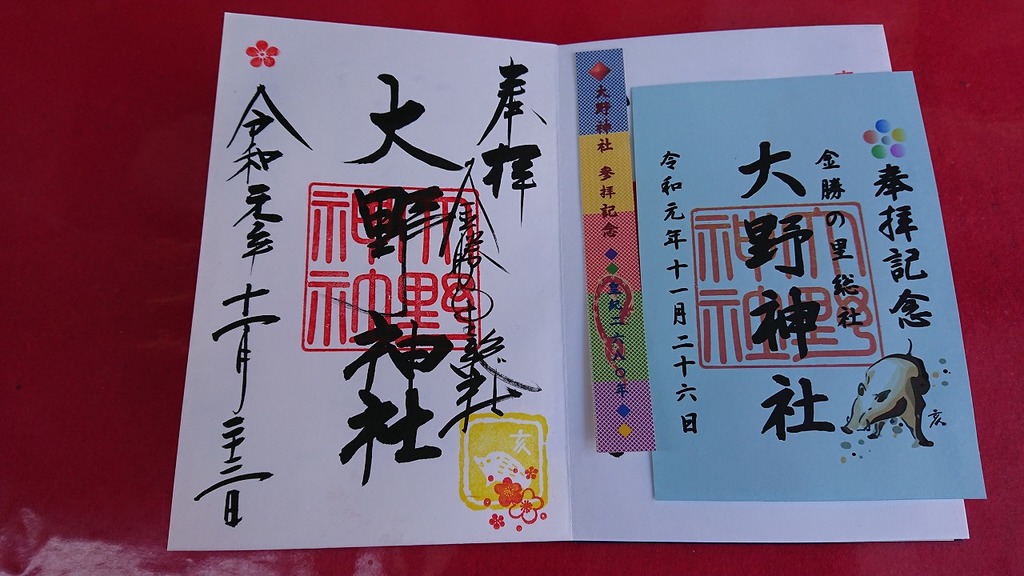 奉拝
金勝の里総社
大野神社
大野神社
令和元年十一月二十三日
亥
大野神社 参拝記念
皇紀二六八〇年
奉拝記念
金勝の里総社
大野神社
大野神社
令和元年十一月二十六日
亥